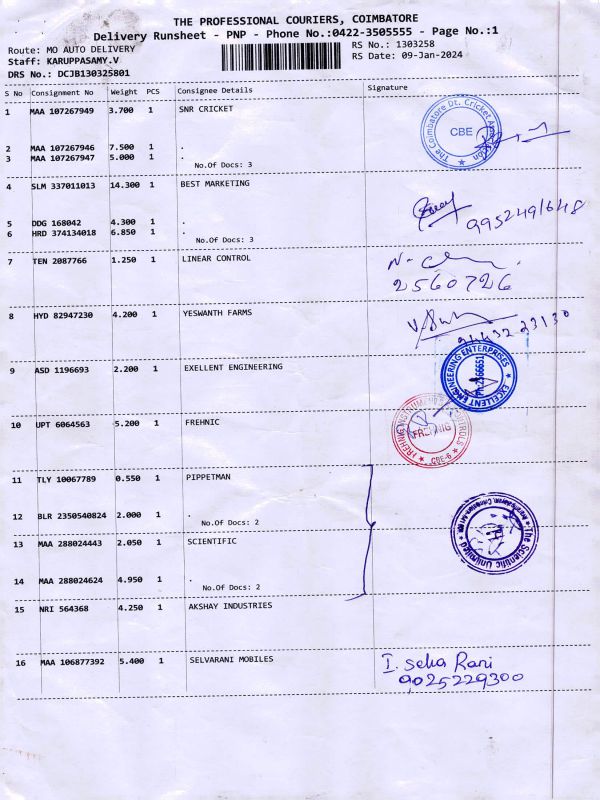 THE PROFESSIONAL COURIERS, COIMBATORE
Delivery Runsheet - PNP - Phone No.:0422-3505555 - Page No.:1
Route: MO AUTO DELIVERY
RS No.: 1303258
Staff: KARUPPASAMY.V
RS Date: 09-Jan-2024
DRS No.: DCJB130325801
S No Consignment No Weight PCS Consignee Details Signature
1 MAA 107267949 3.700 1 SNR CRICKET
The Coimbatore Dt. Cricket Association
CBE
2 MAA 107267946 7.500 1 .
3 MAA 107267947 5.000 1 .
No.Of Docs: 3
4 SLM 337011013 14.300 1 BEST MARKETING
9952491648
5 DDG 168042 4.300 1 .
6 HRD 374134018 6.850 1 .
No.Of Docs: 3
7 TEN 2087766 1.250 1 LINEAR CONTROL
2560726
8 HYD 82947230 4.200 1 YESWANTH FARMS
9 ASD 1196693 2.200 1 EXELLENT ENGINEERING
EXCELLENT ENGINEERING ENTERPRISES
10 UPT 6064563 5.200 1 FREHNIC
FREHNIG
CBE-6
11 TLY 10067789 0.550 1 PIPPETMAN
12 BLR 2350540824 2.000 1 .
No.Of Docs: 2
The Scientific Unlimited
13 MAA 288024443 2.050 1 SCIENTIFIC
14 MAA 288024624 4.950 1 .
No.Of Docs: 2
15 NRI 564368 4.250 1 AKSHAY INDUSTRIES
16 MAA 106877392 5.400 1 SELVARANI MOBILES
I. Selva Rani
9025229300